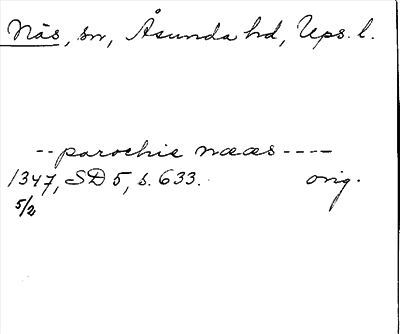 Nås, sn, Åsunda hd, Ups. l.
-- parochie næœs ----
1347, SD 5, s. 633. orig.
5/2